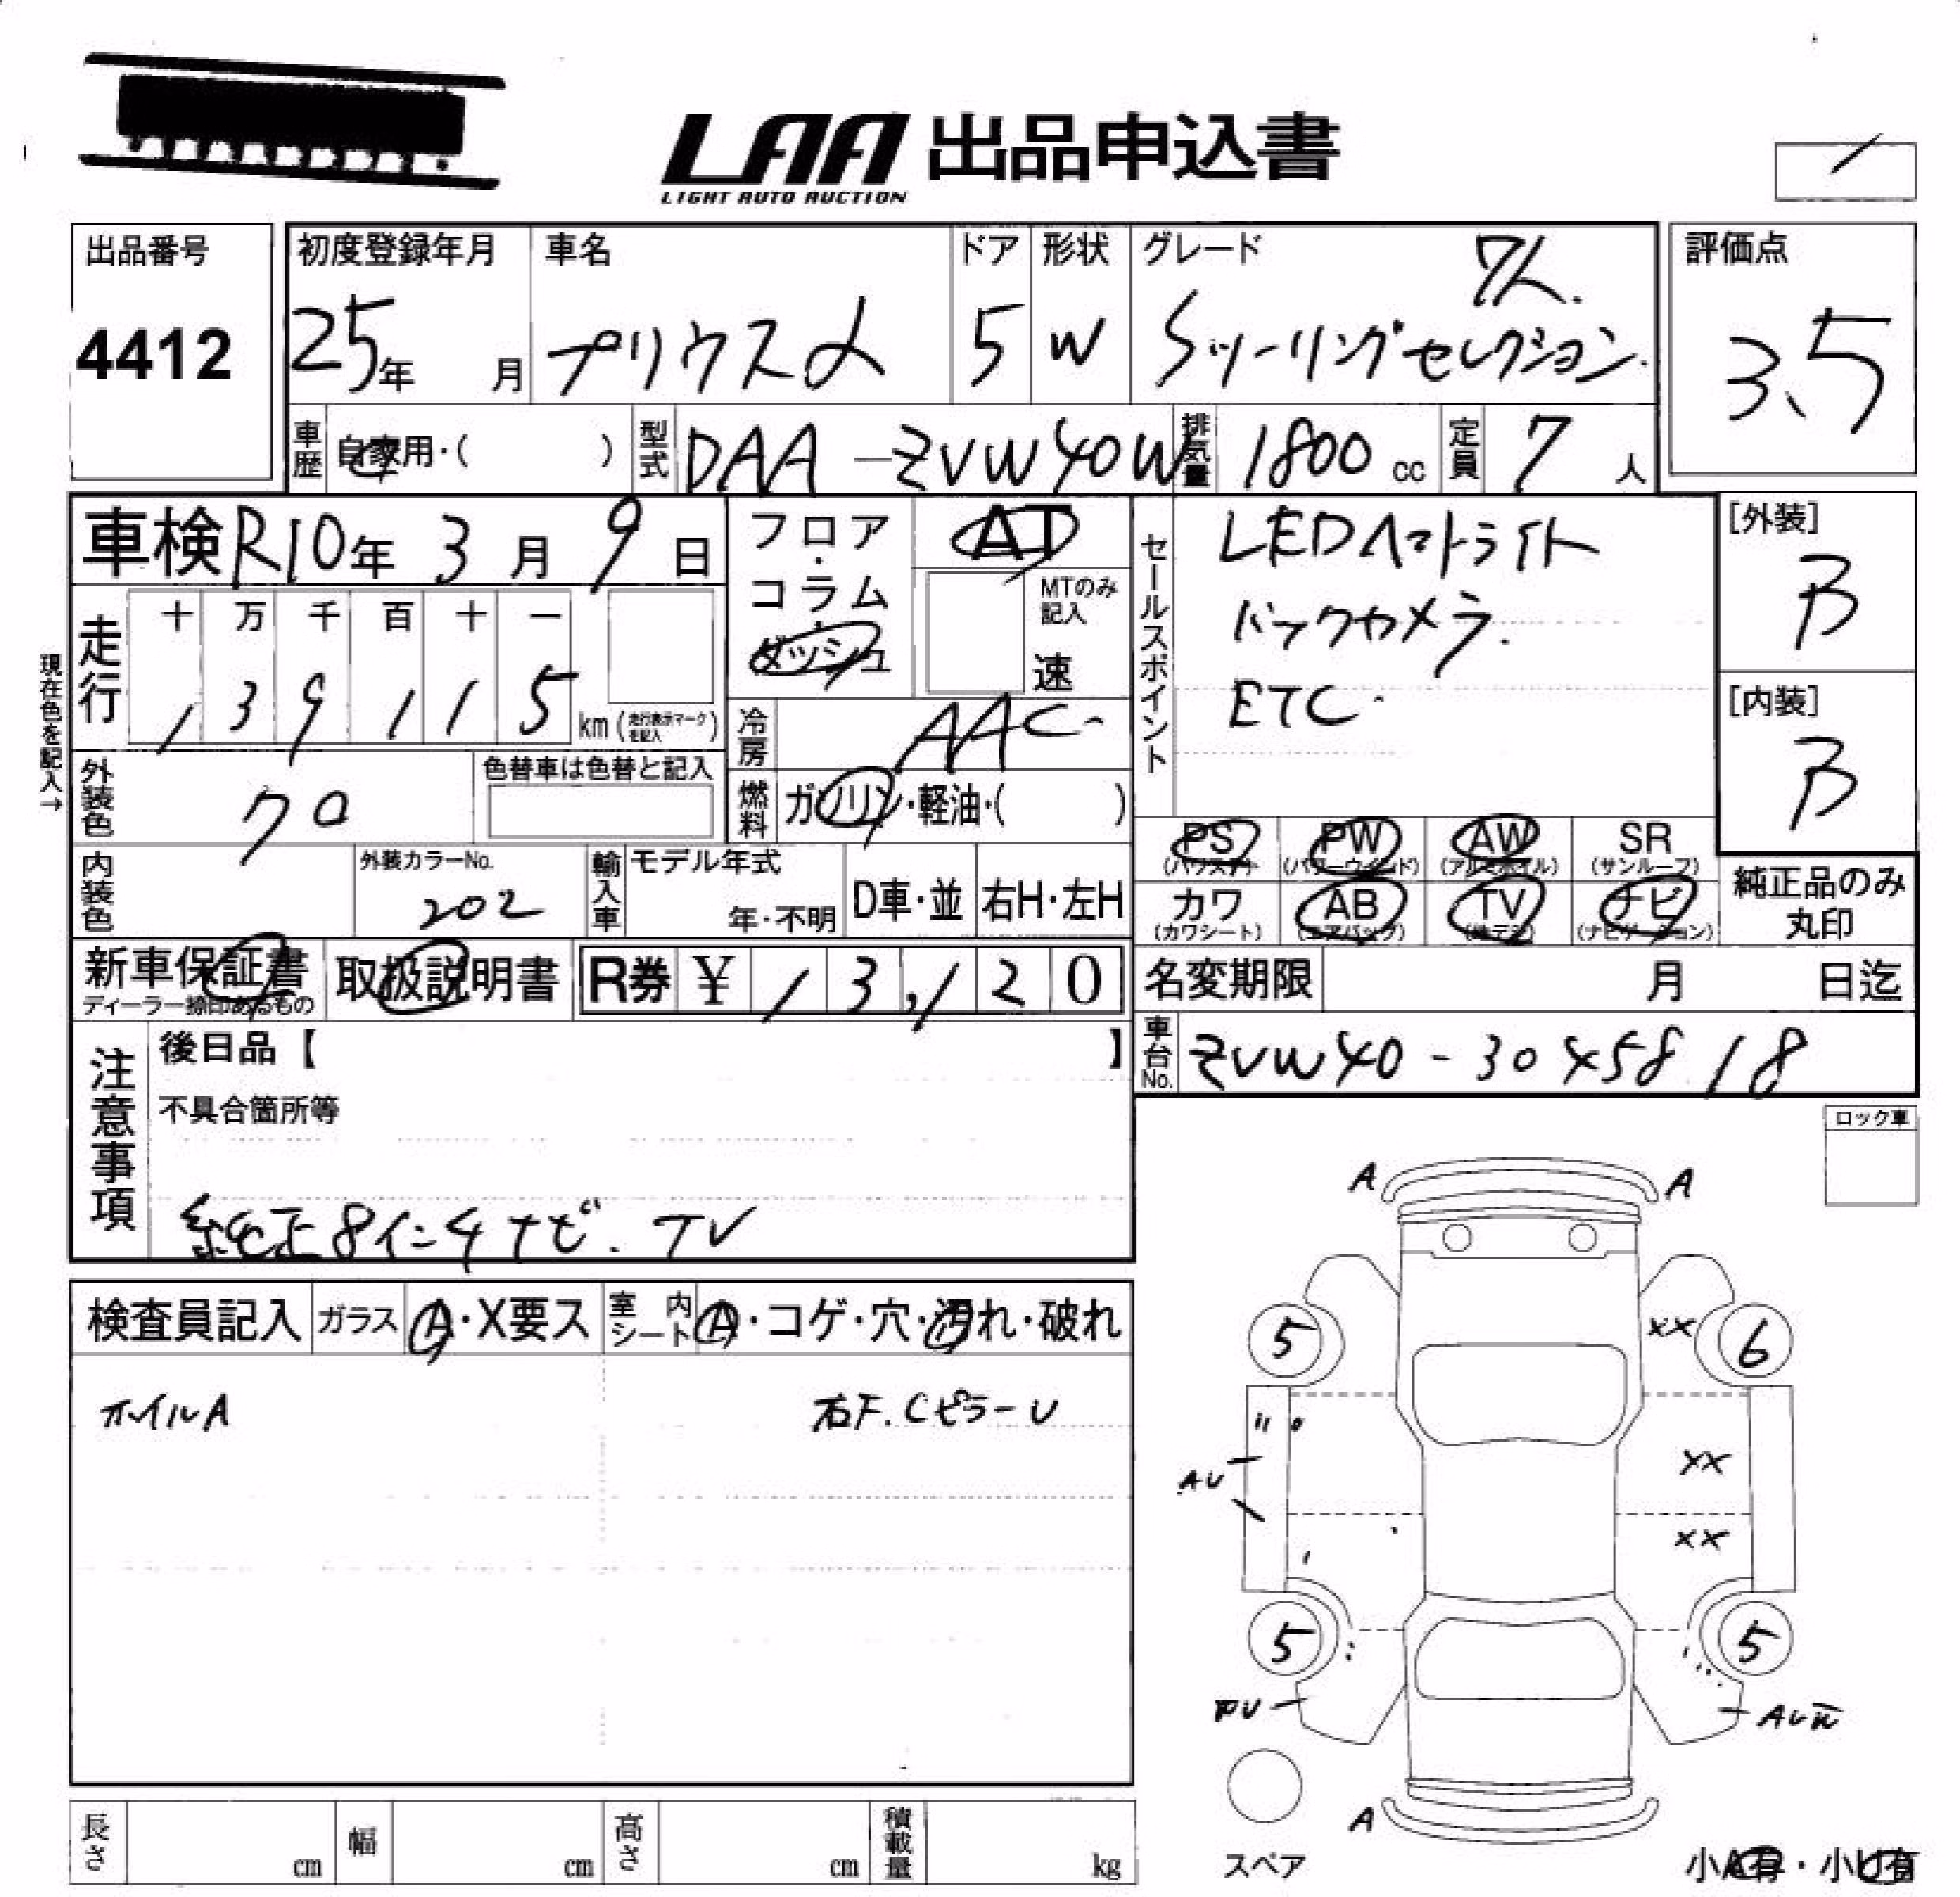 LAA 出品申込書
LIGHT AUTO AUCTION
出品番号
4412
初度登録年月
25年 月
車名
プリウスα
ドア
5
形状
W
グレード
7人.
Sツーリングセレクション.
評価点
3.5
車歴 自家用・( )
型式 DAA-ZVW40W
排気量 1800 cc
定員 7 人
車検 R10年 3月 9日
フロア・コラム・ダッシュ
AT
MTのみ記入
速
セールスポイント
LEDヘッドライト
バックカメラ.
ETC
[外装]
B
[内装]
B
現在色を記入→
走行
十 万 千 百 十 一
1 3 9 1 1 5 km (走行表示マークを記入)
冷房 AAC
外装色 クロ
色替車は色替と記入
燃料 ガソリン・軽油・( )
PS (パワステ) PW (パワーウインド) AW (アルミホイル) SR (サンルーフ)
カワ (カワシート) AB (エアバッグ) TV (テレビ) ナビ (ナビゲーション)
純正品のみ丸印
内装色
外装カラーNo.
202
輸入車 モデル年式
年・不明
D車・並 右H・左H
新車保証書
ディーラー捺印あるもの
取扱説明書
R券 ¥ 13,120
名変期限 月 日迄
車台No. ZVW40-3045818
注意事項
後日品【 】
不具合箇所等
純正8インチナビ. TV
ロック車
検査員記入 ガラス A・X要ス 室内シート A・コゲ・穴・汚れ・破れ
ホイルA
右F.CピラーU
A A
5 XX 6
AU
XX
XX
5 5
A
スペア
小A有・小U有
長さ cm 幅 cm 高さ cm 積載量 kg